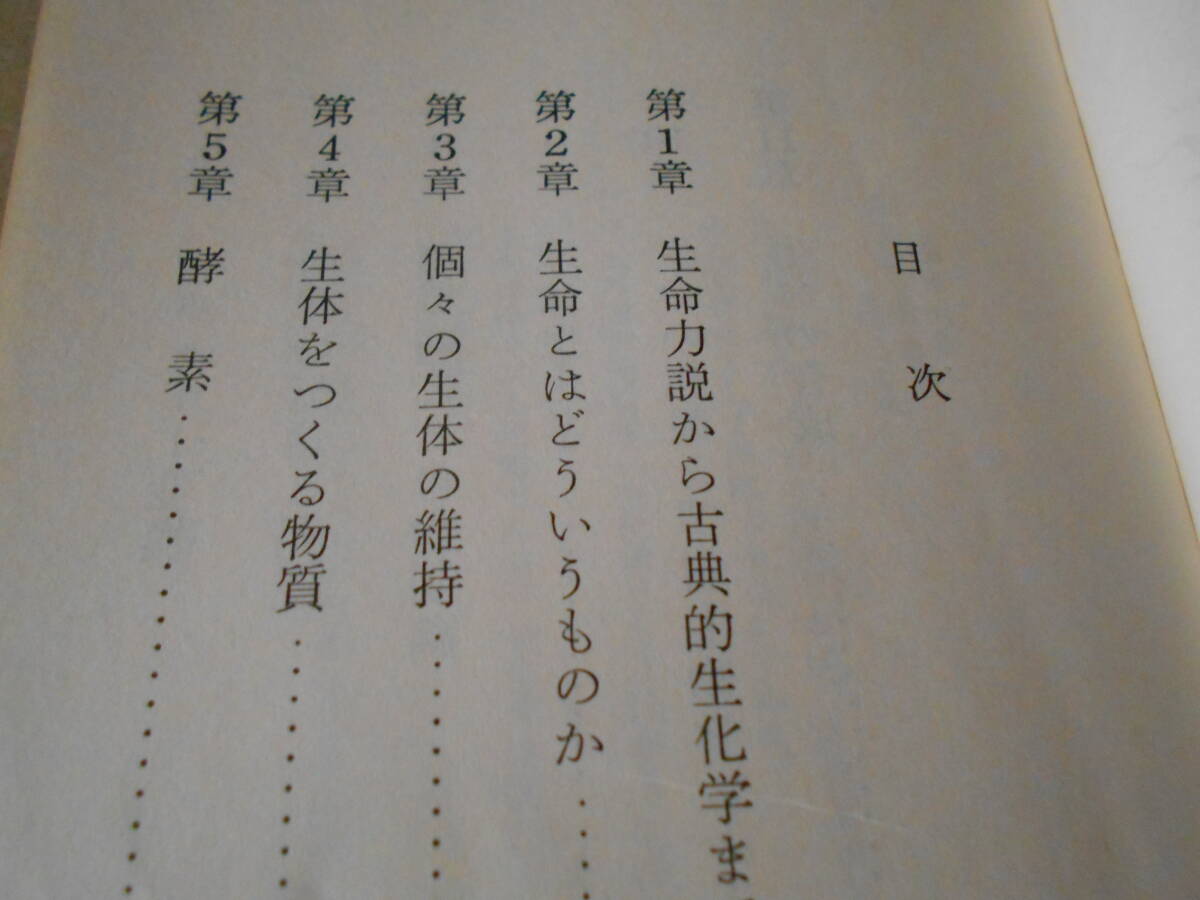 目次
第1章 生命力説から古典的生化学ま
第2章 生命とはどういうものか……
第3章 個々の生体の維持………
第4章 生体をつくる物質………
第5章 酵素………………